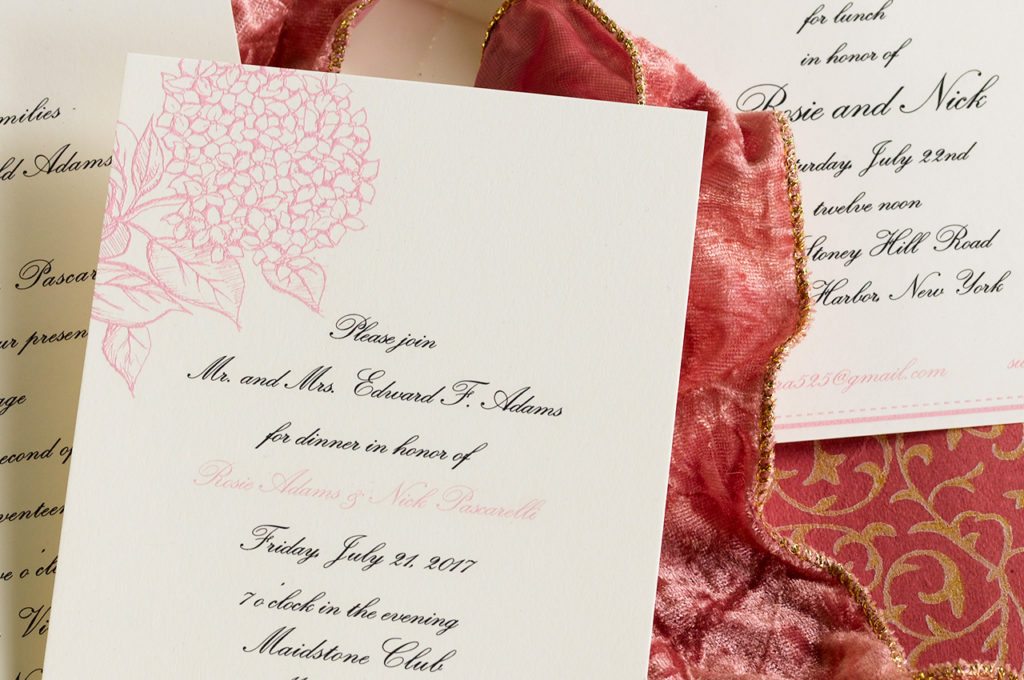 milies
Adams
Pascar
presen
age
econd of
venteen
o'cl
Vi
Please join
Mr. and Mrs. Edward F. Adams
for dinner in honor of
Rosie Adams & Nick Pascarelli
Friday, July 21, 2017
7 o'clock in the evening
Maidstone Club
for lunch
in honor of
Rosie and Nick
urday, July 22nd
twelve noon
Stoney Hill Road
Harbor, New York
a525@gmail.com